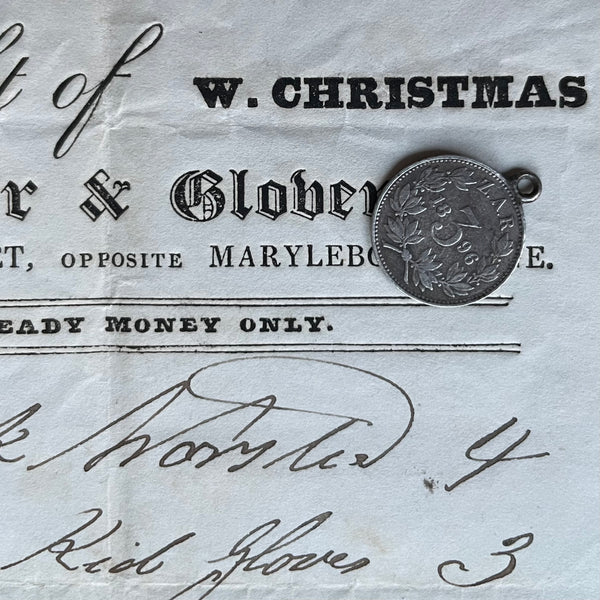 t of W. CHRISTMAS
r & Glover
ET, OPPOSITE MARYLEBO E.
EADY MONEY ONLY.
k Worsted 4
Kid Gloves 3
ZAR
3
18 96